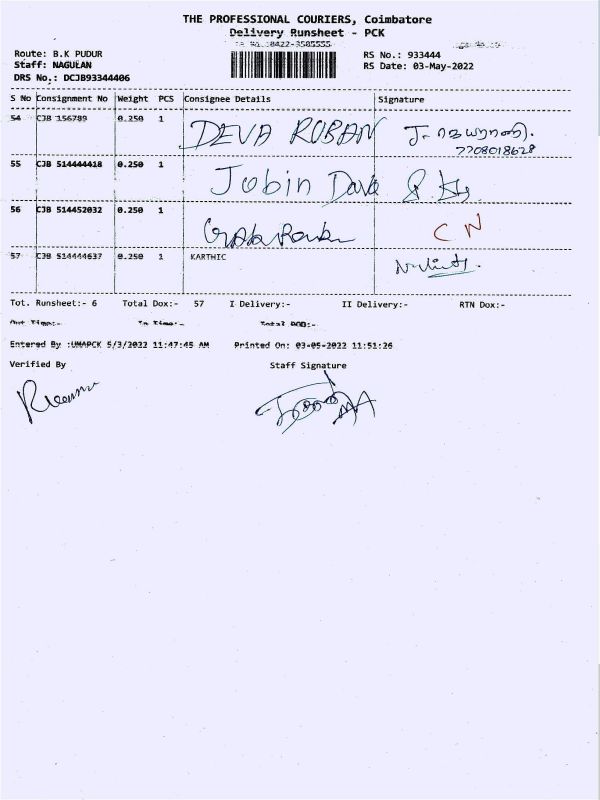 THE PROFESSIONAL COURIERS, Coimbatore
Delivery Runsheet - PCK
0422-3505555
Route: B.K PUDUR
RS No.: 933444
Staff: NAGULAN
RS Date: 03-May-2022
DRS No.: DCJB93344406
S No Consignment No Weight PCS Consignee Details Signature
54 CJB 156789 0.250 1 DEVA ROBAN
7708018628
55 CJB 514444418 0.250 1 Jobin Dava
56 CJB 514452032 0.250 1 C N
57 CJB 514444637 0.250 1 KARTHIC
Tot. Runsheet:- 6 Total Dox:- 57 I Delivery:- II Delivery:- RTN Dox:-
Out Time:- In Time:- Total POD:-
Entered By :UMAPCK 5/3/2022 11:47:45 AM Printed On: 03-05-2022 11:51:26
Verified By Staff Signature